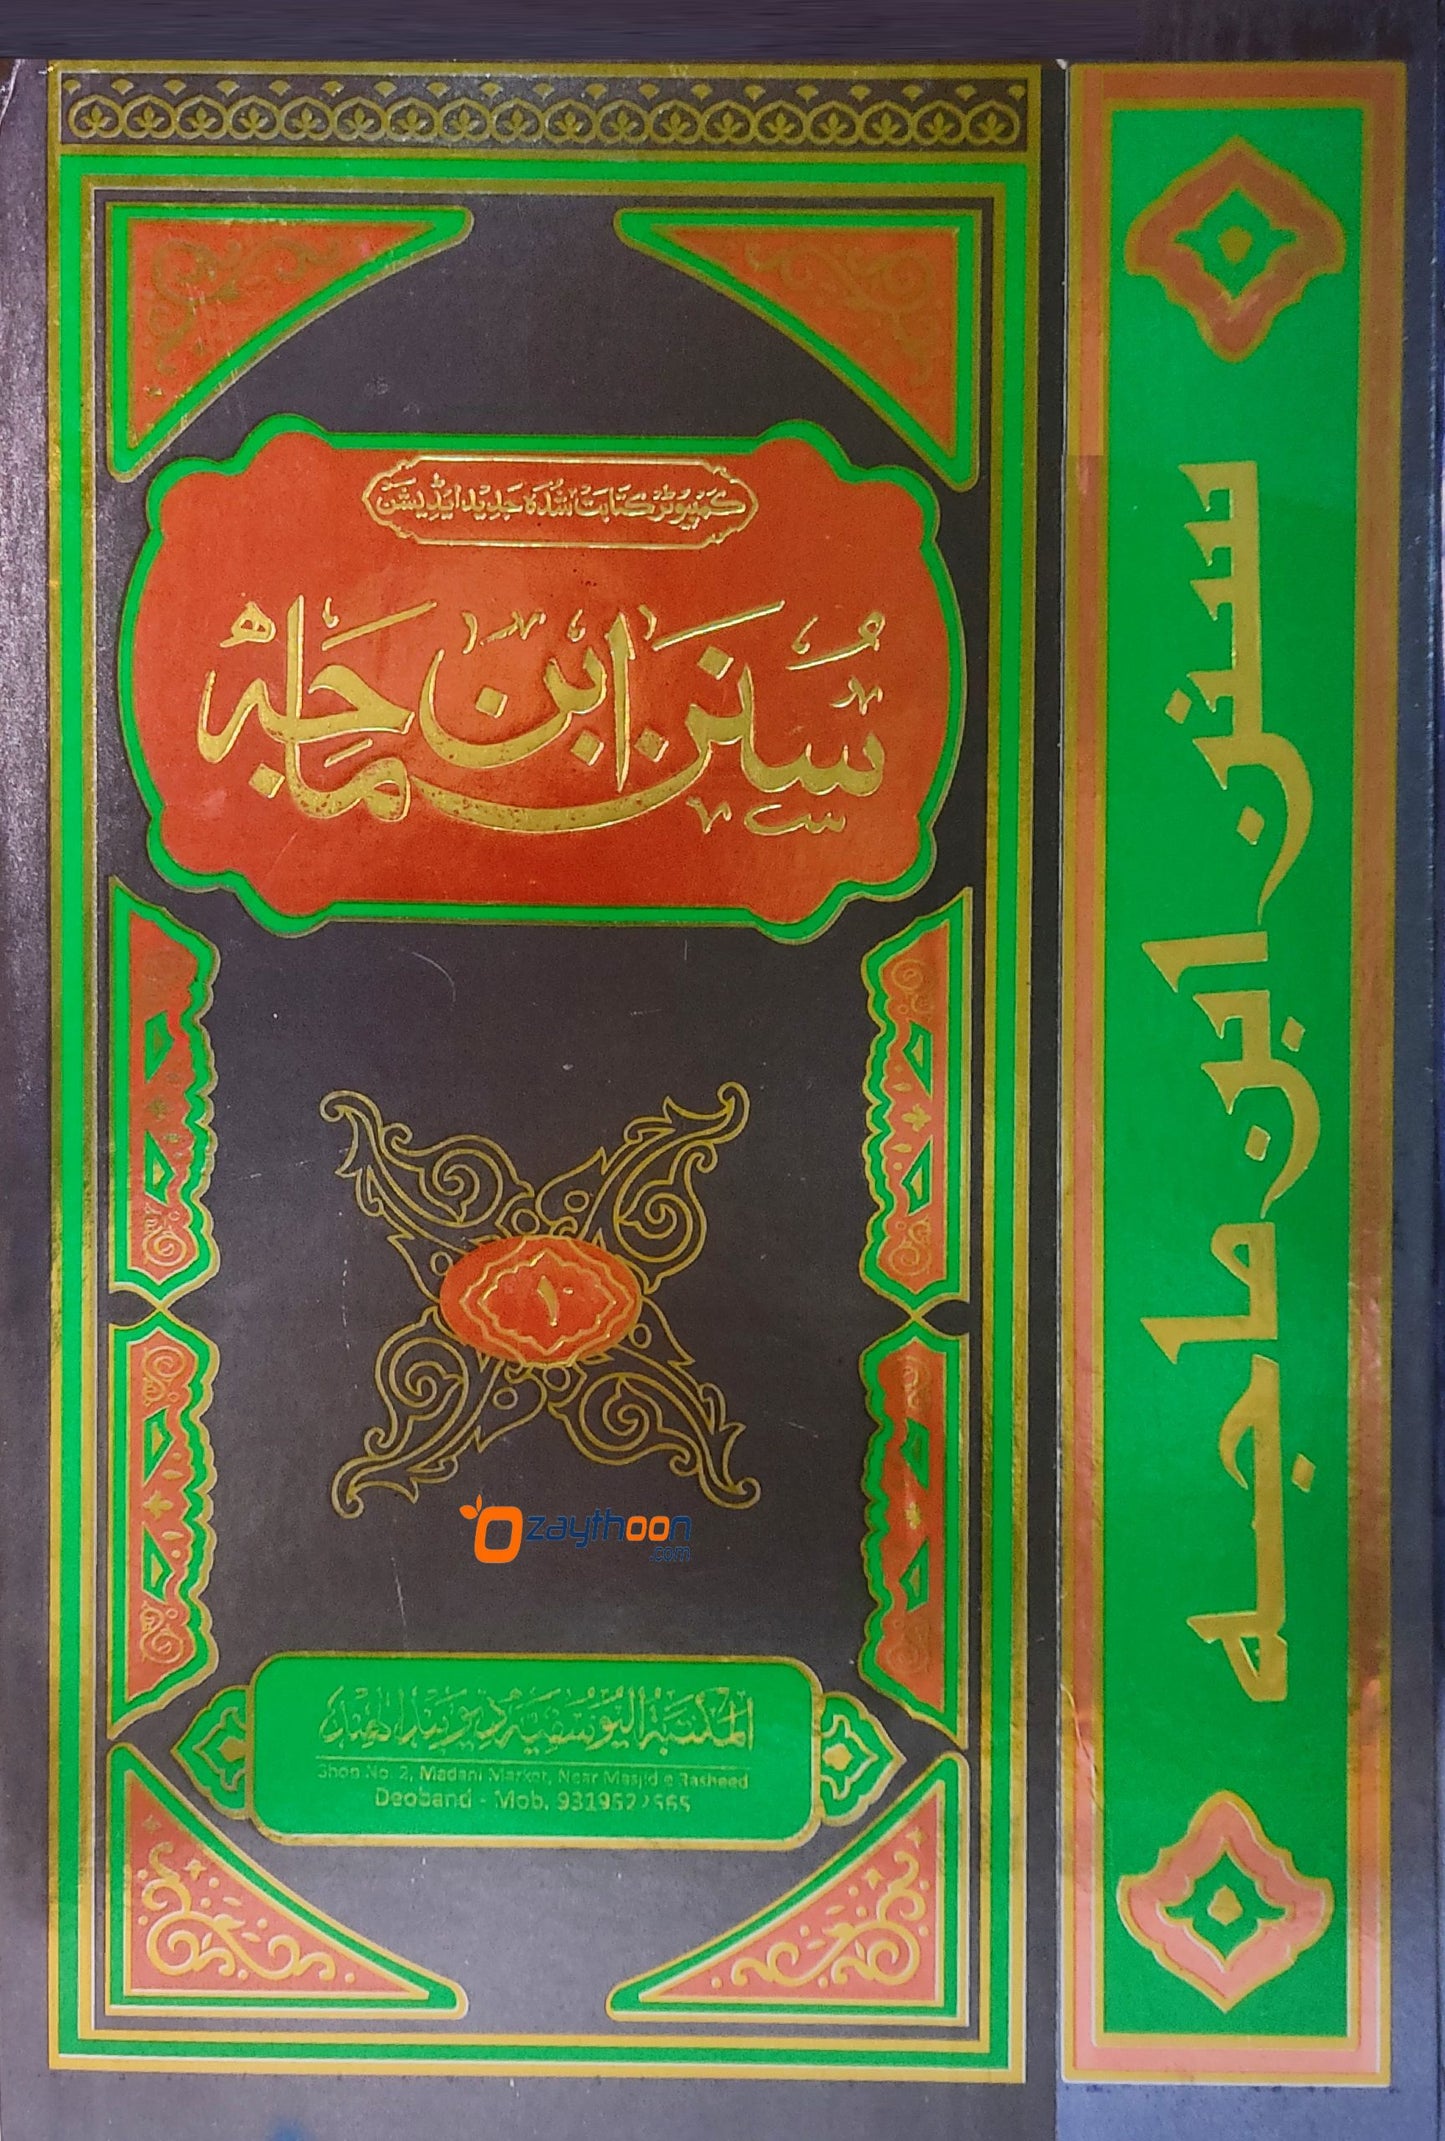 كمپيوٹر كتابت شده جديد ايڈيشن
سُنَن ابْن مَاجَه
١
zaythoon
.com
المكتبة اليوسفية ديوبند الهند
Shop No. 2, Madani Market, Near Masjid e Rasheed
Deoband - Mob.
سنن ابن ماجه